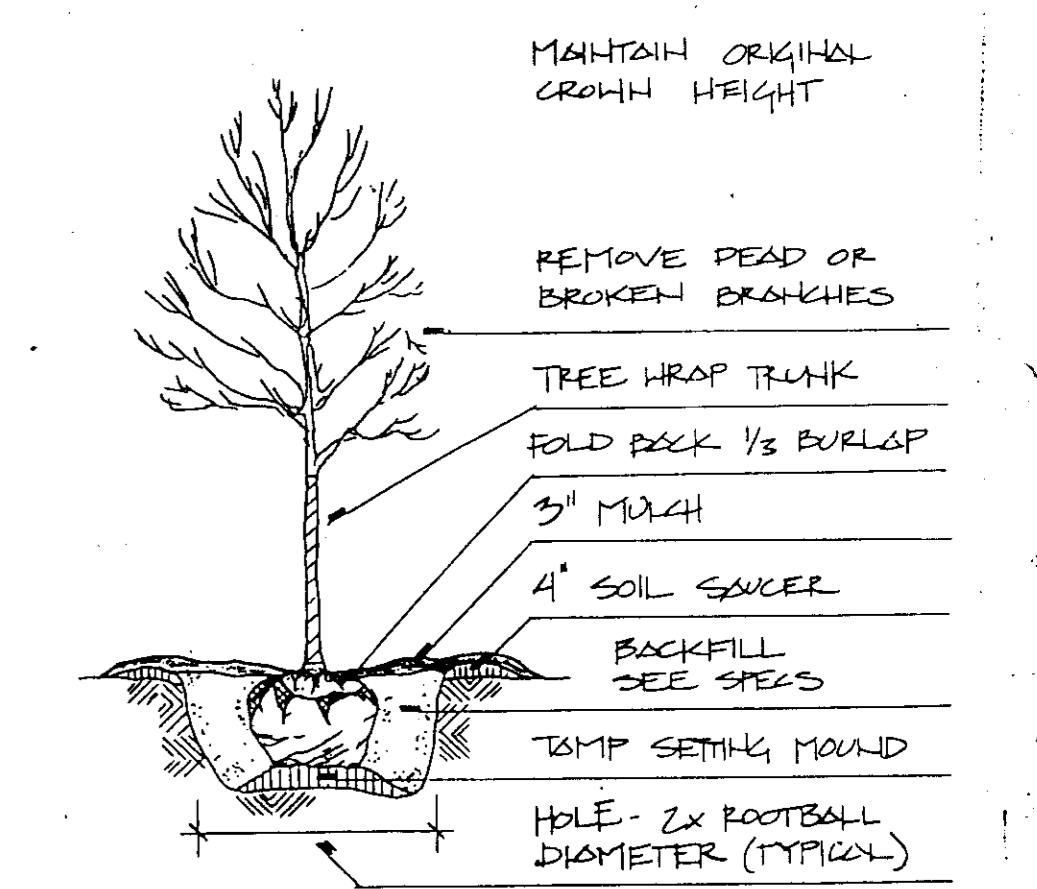 MAINTAIN ORIGINAL
CROWN HEIGHT
REMOVE DEAD OR
BROKEN BRANCHES
TREE WRAP TRUNK
FOLD BACK 1/3 BURLAP
3" MULCH
4" SOIL SAUCER
BACKFILL
SEE SPECS
TAMP SETTING MOUND
HOLE - 2x ROOTBALL
DIAMETER (TYPICAL)